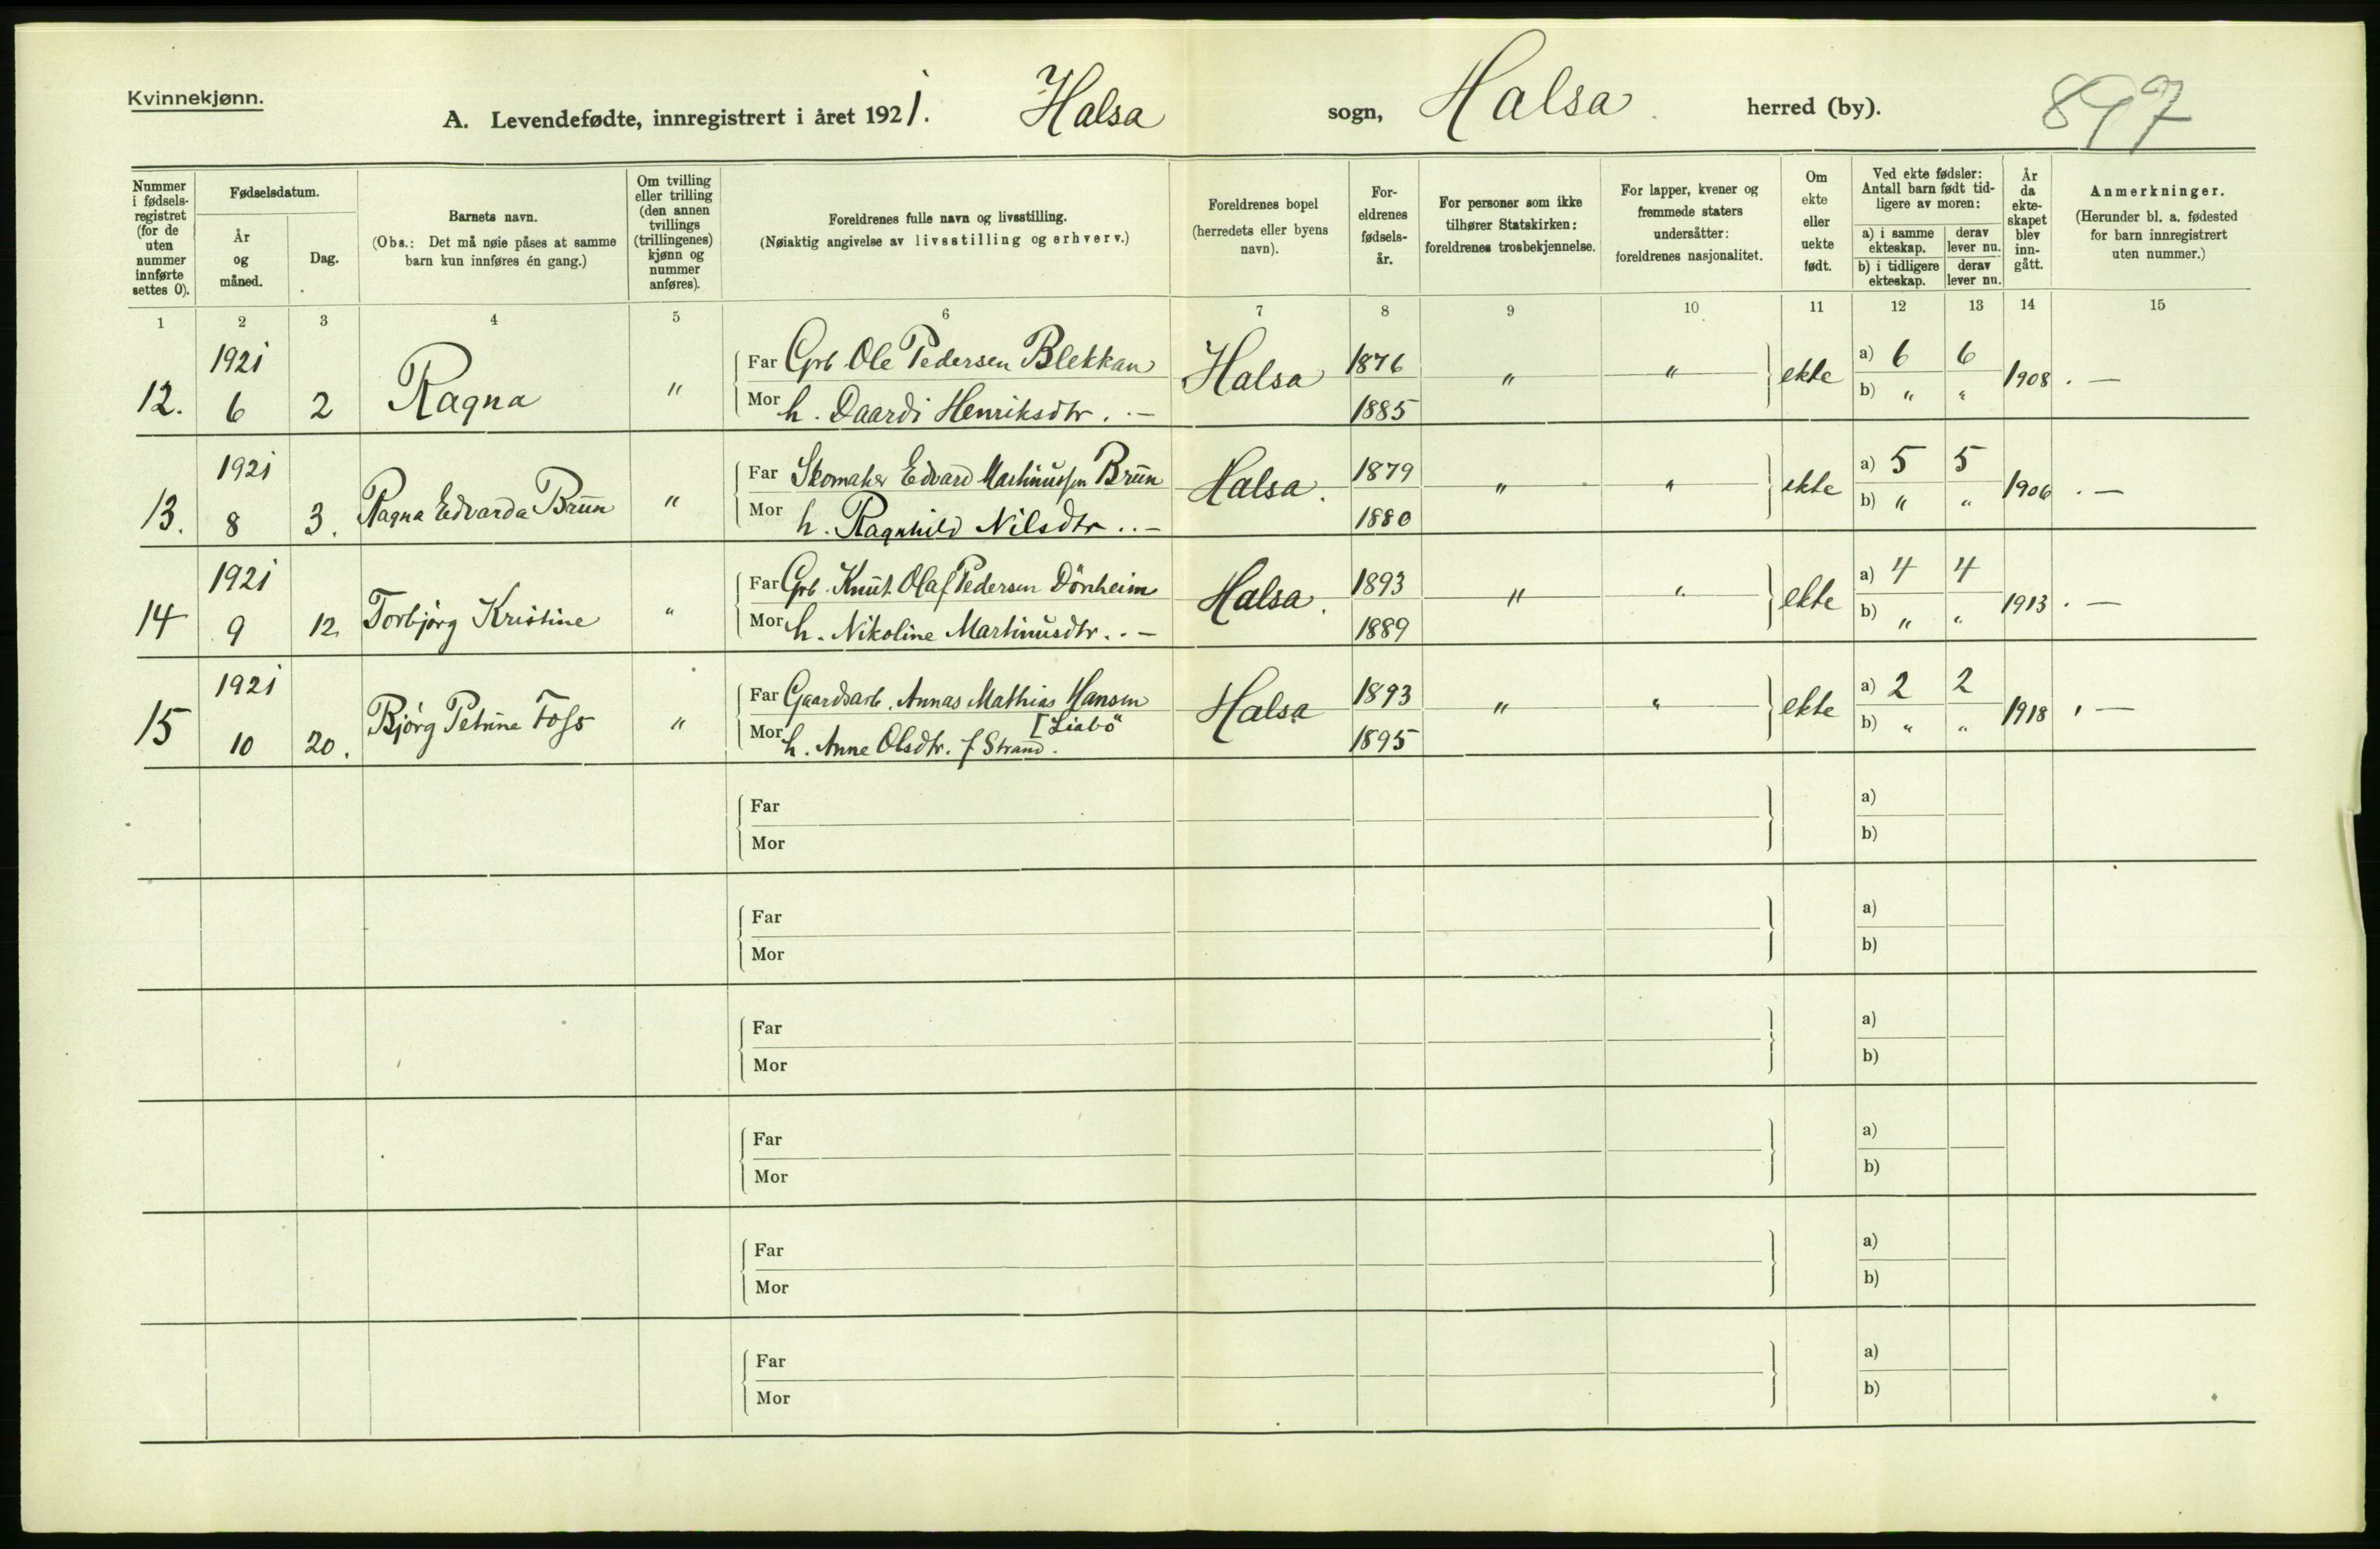 Kvinnekjønn.
A. Levendefødte, innregistrert i året 1921. Halsa sogn, Halsa herred (by). 897
Nummer i fødsels-registret (for de uten nummer innførte settes 0).
Fødselsdatum.
År og måned.
Dag.
Barnets navn.
(Obs.: Det må nøie påses at samme barn kun innføres én gang.)
Om tvilling eller trilling (den annen tvillings (trillingenes) kjønn og nummer anføres).
Foreldrenes fulle navn og livsstilling.
(Nøiaktig angivelse av livsstilling og erhverv.)
Foreldrenes bopel (herredets eller byens navn).
For-eldrenes fødsels-år.
For personer som ikke tilhører Statskirken: foreldrenes trosbekjennelse.
For lapper, kvener og fremmede staters undersåtter: foreldrenes nasjonalitet.
Om ekte eller uekte født.
Ved ekte fødsler: Antall barn født tid-ligere av moren:
a) i samme ekteskap. derav lever nu.
b) i tidligere ekteskap. derav lever nu.
År da ekte-skapet blev inn-gått.
Anmerkninger.
(Herunder bl. a. fødested for barn innregistrert uten nummer.)
1 2 3 4 5 6 7 8 9 10 11 12 13 14 15
1921 Far Grb Ole Pedersen Blekkan 1876 a) 6 6
12. 6 2 Ragna " Halsa " " ekte 1908 . —
Mor h. Daardi Henriksdtr. . — 1885 b) " "
1921 Far Skomaker Edvard Martinussen Brun 1879 a) 5 5
13. 8 3. Ragna Edvarda Brun " Halsa. " " ekte 1906 . —
Mor h. Ragnhild Nilsdtr . . — 1880 b) " "
1921 Far Grb. Knut Olaf Pedersen Dönheim 1893 a) 4 4
14 9 12 Torbjørg Kristine " Halsa. " " ekte 1913 . —
Mor h. Nikoline Martinusdtr. . — 1889 b) " "
1921 Far Gaardsarb. Annas Mathias Hansen 1893 a) 2 2
[Liabö
15 10 20. Bjørg Petrine Foss " Halsa " " ekte 1918 . —
Mor h. Anne Olsdtr. f Strand. 1895 b) " "
Far a)
Mor b)
Far a)
Mor b)
Far a)
Mor b)
Far a)
Mor b)
Far a)
Mor b)
Far a)
Mor b)